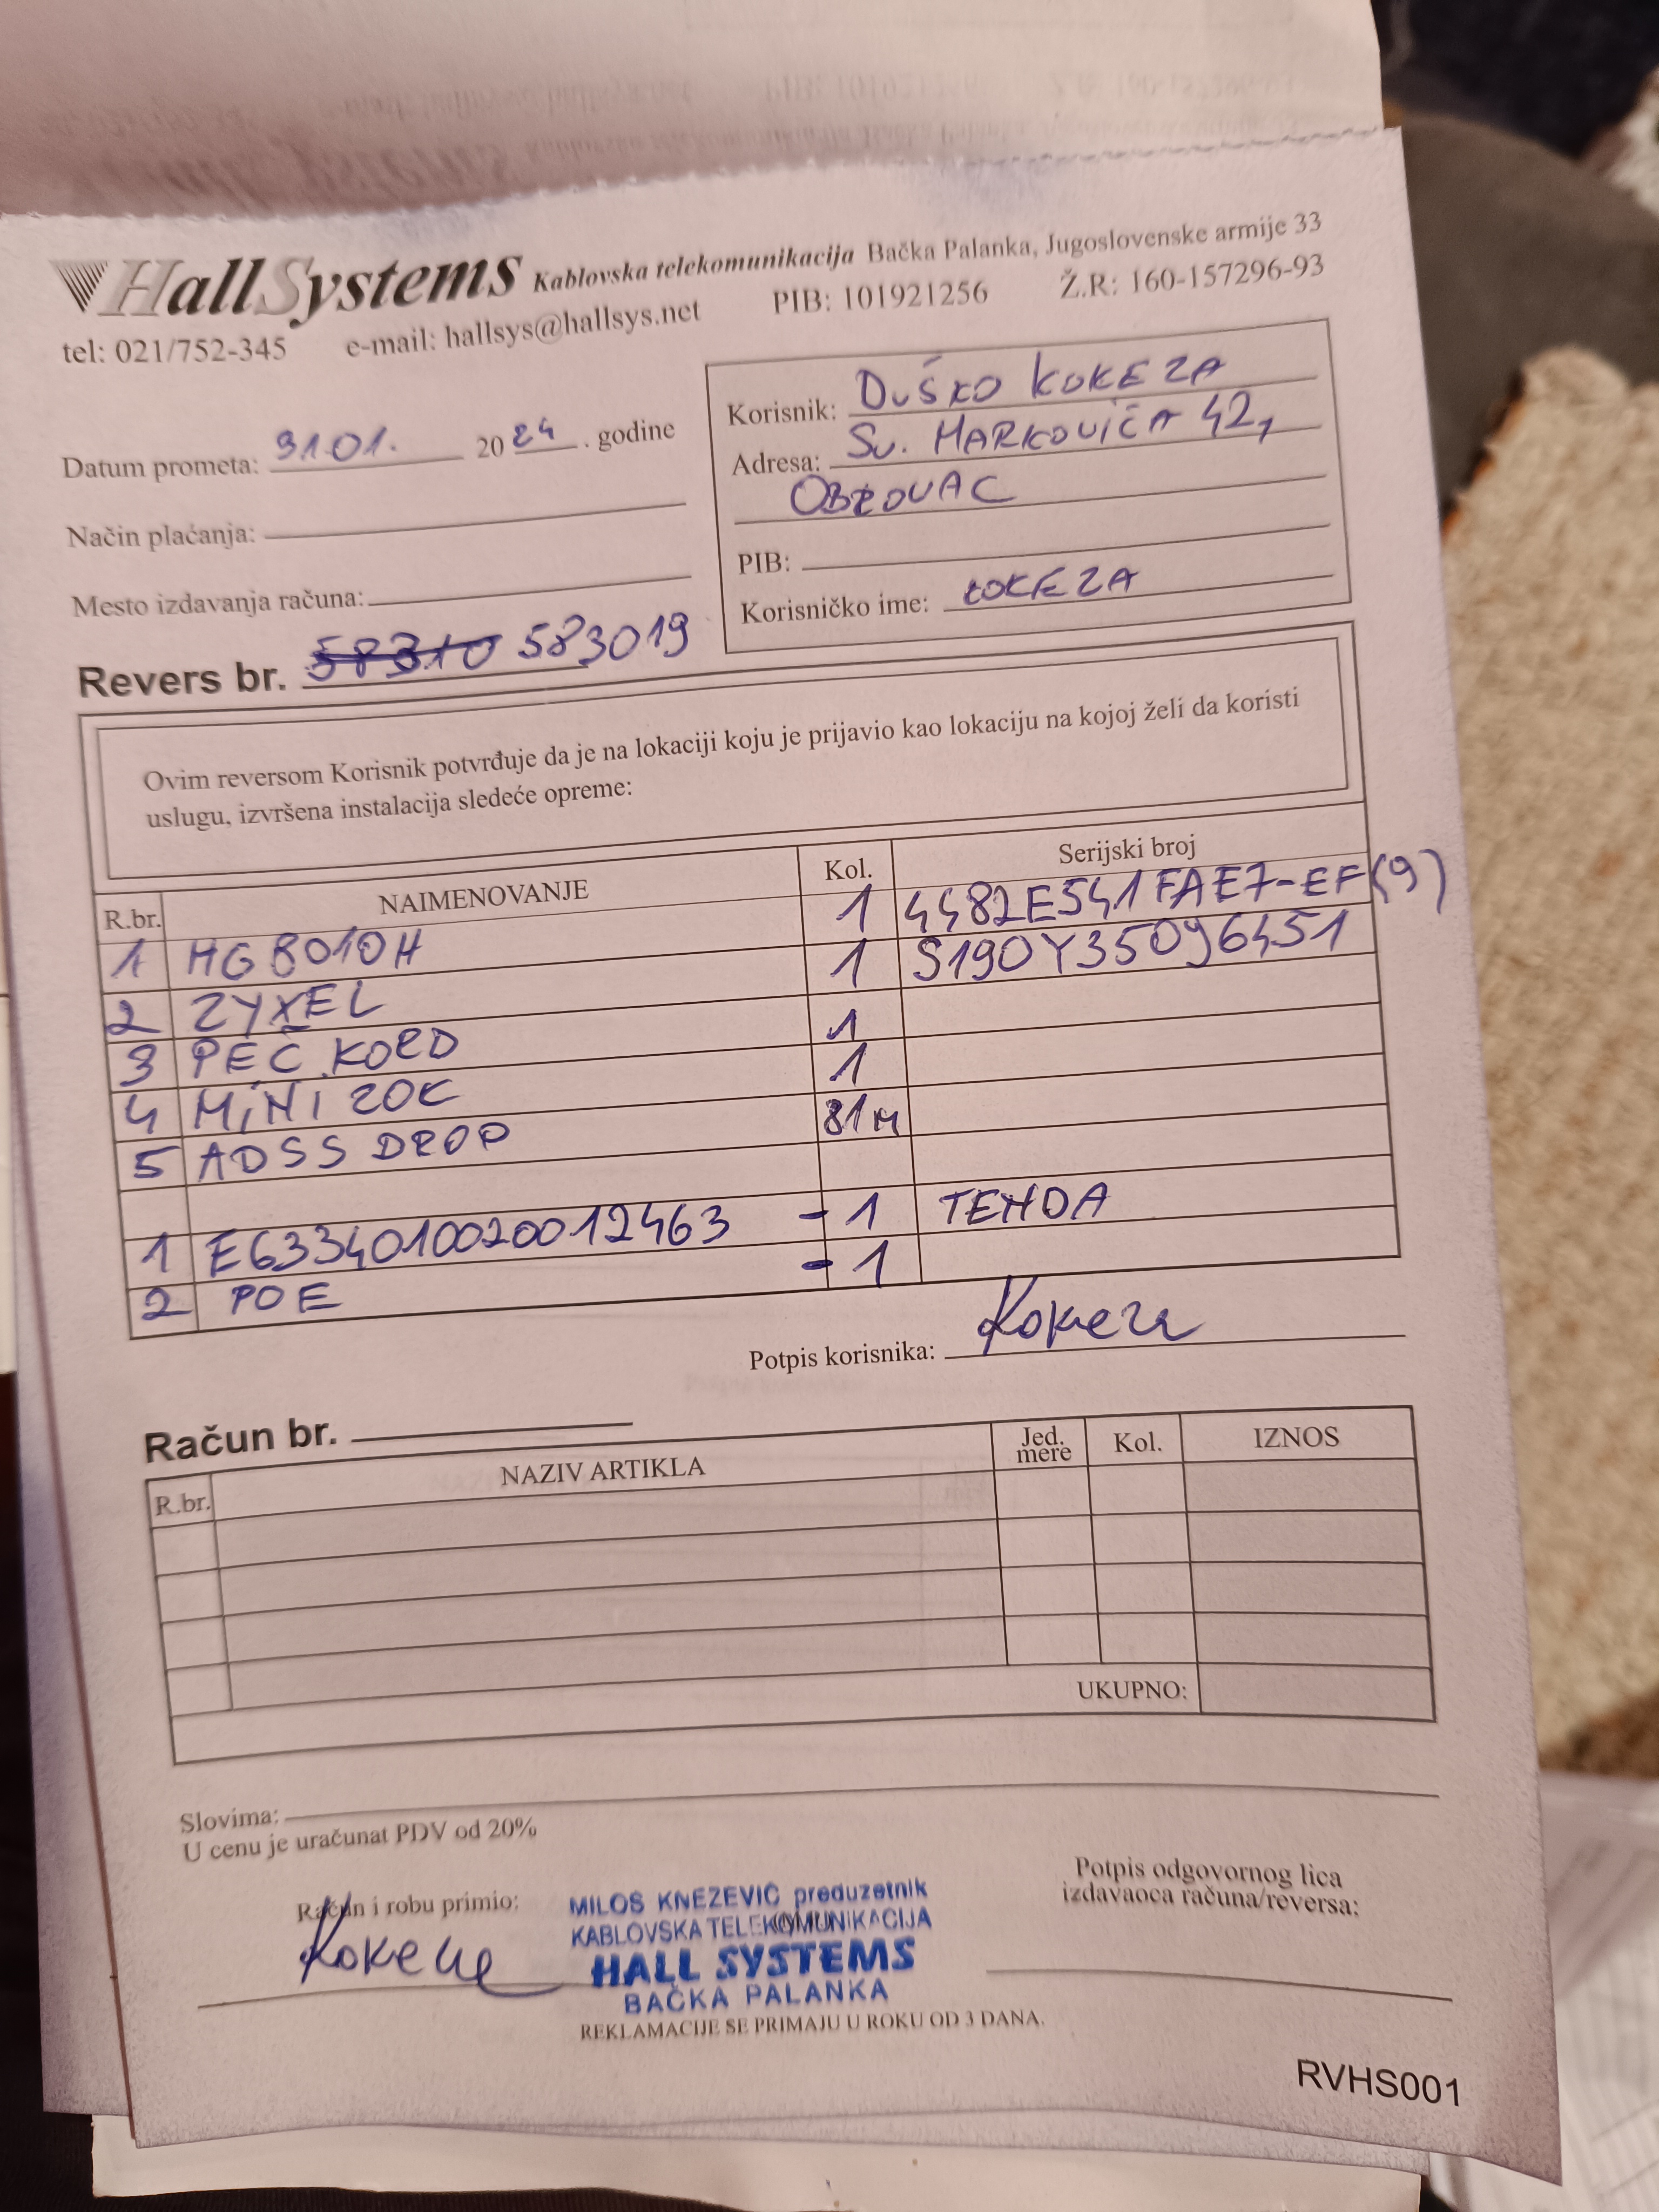 HallSystems Kablovska telekomunikacija Bačka Palanka, Jugoslovenske armije 33
tel: 021/752-345 e-mail: hallsys@hallsys.net PIB: 101921256 Ž.R: 160-157296-93
Datum prometa: 31.01. 2024. godine
Način plaćanja:
Mesto izdavanja računa:
Korisnik: DUŠKO KOKEZA
Adresa: SV. MARKOVIĆA 42,
OBROVAC
PIB:
Korisničko ime: KOKEZA
Revers br. 58310 583019
Ovim reversom Korisnik potvrđuje da je na lokaciji koju je prijavio kao lokaciju na kojoj želi da koristi
uslugu, izvršena instalacija sledeće opreme:
R.br. NAIMENOVANJE Kol. Serijski broj
1 HG8010H 1 4482E541FAE7-EF(9)
2 ZYXEL 1 S190Y35096451
3 PEČ KORD 1
4 MINI ROK 1
5 ADSS DROP 81m
1 E6334010020012463 - 1 TENDA
2 POE - 1
Potpis korisnika: Kokeza
Račun br.
R.br. NAZIV ARTIKLA Jed. mere Kol. IZNOS
UKUPNO:
Slovima:
U cenu je uračunat PDV od 20%
Račun i robu primio:
Kokeza
MILOS KNEZEVIĆ preduzetnik
KABLOVSKA TELEKOMUNIKACIJA
HALL SYSTEMS
BAČKA PALANKA
Potpis odgovornog lica
izdavaoca računa/reversa:
REKLAMACIJE SE PRIMAJU U ROKU OD 3 DANA.
RVHS001